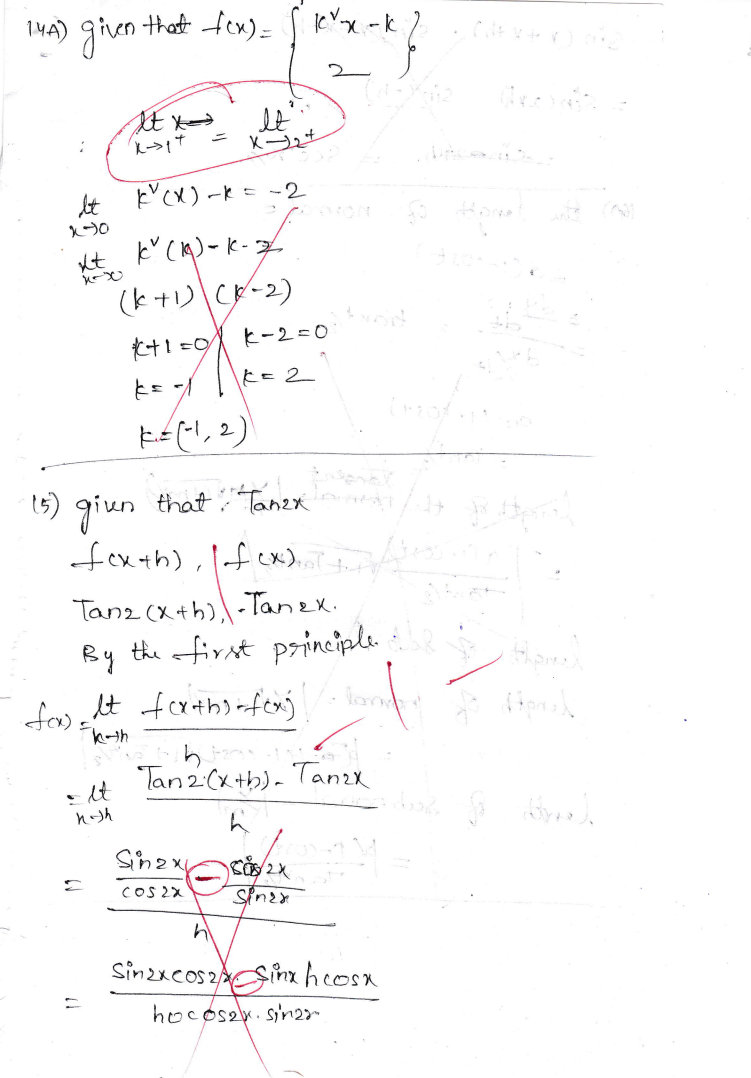 14A) given that f(x) = { k²x - k }
2
lt x→
x→1⁺ = lt
x→2⁺
lt k²(x) - k = -2
x→0
lt k²(k) - k - 2
x→∞
(k+1) (k-2)
k+1=0 | k-2=0
k=-1 | k=2
k=(-1, 2)
15) given that Tan2x
f(x+h), f(x)
Tan2(x+h), Tan2x.
By the first principle
f(x) = lt f(x+h) - f(x)
h→h
h
= lt Tan2(x+h) - Tan2x
h→h
h
= Sin2x - cos2x
cos2x Sin2x
h
= Sin2xcos2x - Sinx hcosx
hocos2x. sin2x